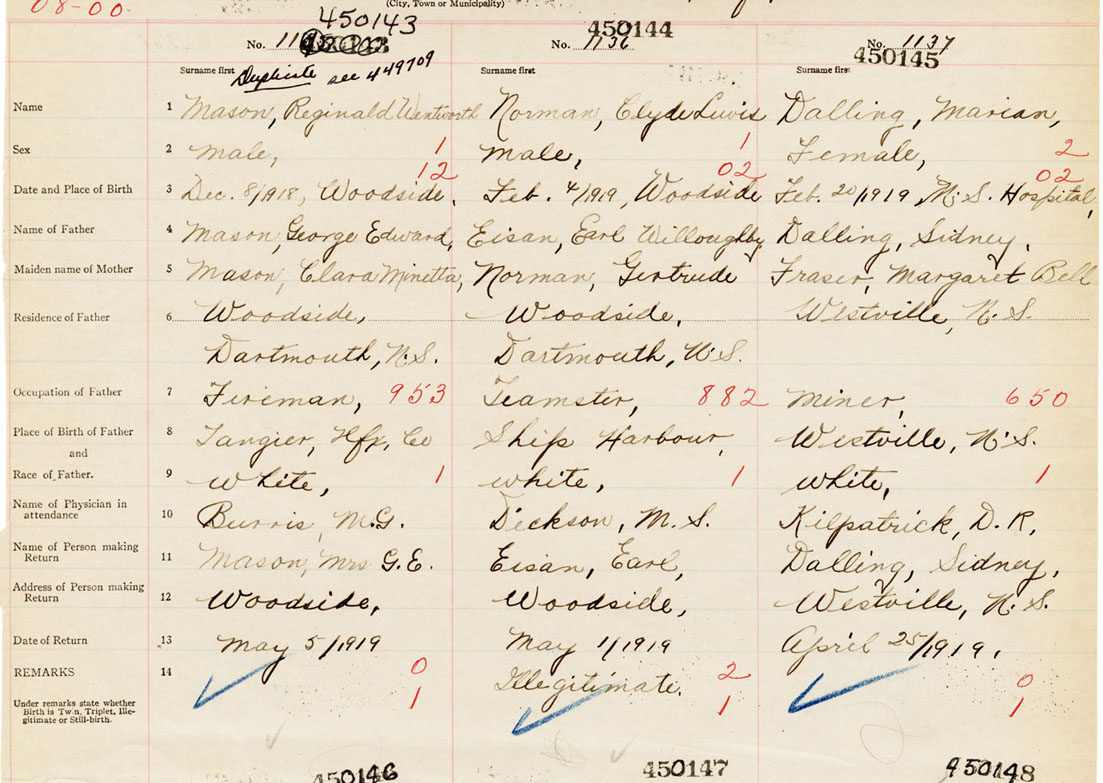 08-00.
(City, Town or Municipality)
450143
450144
450145
No. No. 1136 No. 1137
Duplicate see 449709
Surname first Surname first Surname first
Name 1 Mason, Reginald Wentworth Norman, Clyde Lewis Dalling, Marian,
Sex 2 male, 1 male, 1 Female, 2
12 02 02
Date and Place of Birth 3 Dec. 8/1918, Woodside, Feb. 4/1919, Woodside Feb. 20/1919, N.S. Hospital,
Name of Father 4 Mason, George Edward, Eisan, Earl Willoughby, Dalling, Sidney,
Maiden name of Mother 5 Mason, Clara Minetta, Norman, Gertrude Fraser, Margaret Bell
Residence of Father 6 Woodside, Woodside, Westville, N.S.
Dartmouth, N.S. Dartmouth, N.S.
Occupation of Father 7 Fireman, 953 Teamster, 882 Miner, 650
Place of Birth of Father 8 Tangier, Hfx, Co Ship Harbour, Westville, N.S.
and
Race of Father. 9 white, 1 white, 1 white, 1
Name of Physician in
attendance 10 Burris, M.G. Dickson, M.S. Kilpatrick, D.R,
Name of Person making
Return 11 Mason, Mrs G.E. Eisan, Earl, Dalling, Sidney,
Address of Person making
Return 12 Woodside, Woodside, Westville, N.S.
Date of Return 13 May 5/1919 May 1/1919 April 25/1919.
REMARKS 14 0 Illegitimate. 2 0
Under remarks state whether
Birth is Twin, Triplet, Ille-
gitimate or Still-birth. 1 1 1
450146 450147 450148